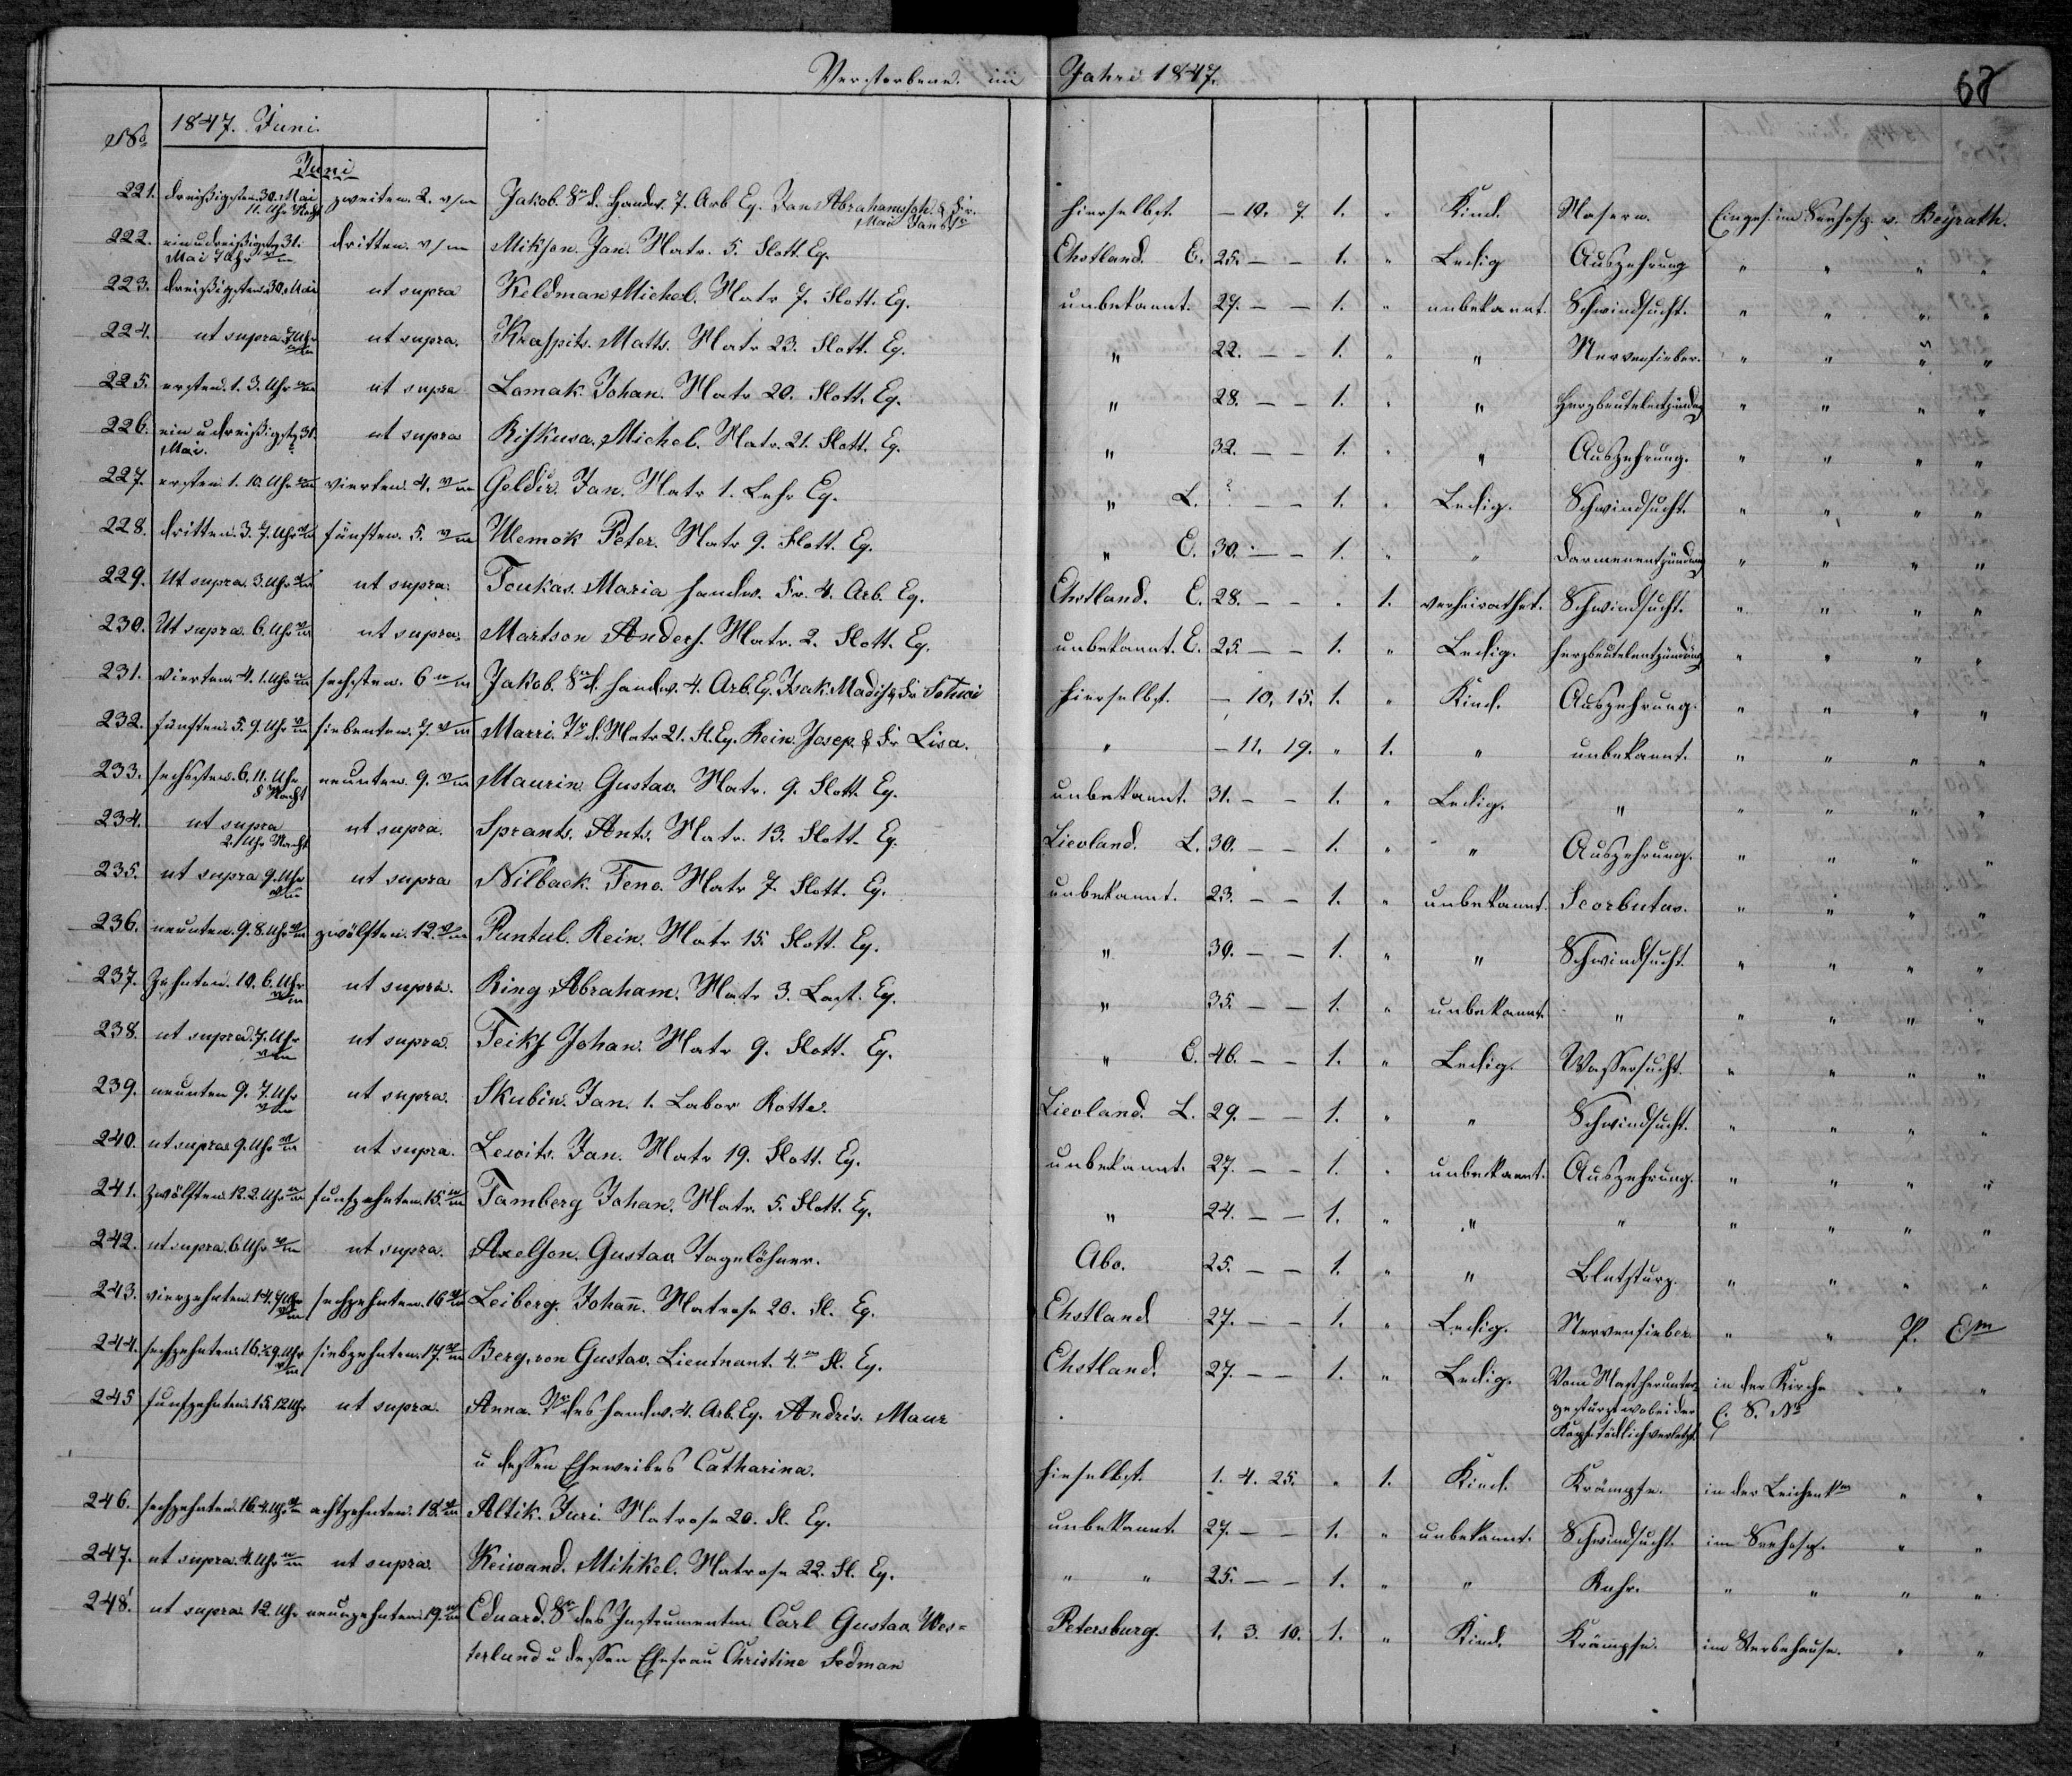 Verstorbene im Jahre 1847. 68
No 1847. Juni.
Juni
221. dreißigsten 30. Mai 11. Uhr Nacht zweiten 2. v/m Jakob. Sn d. Handw. 7. Arb Eq. Jan Abrahamssoh. & Fr. Mai Jans Tr hierselbst. — 10. 7. 1. " Kind. Masern. Einges. im Seehosp. v. Beyrath.
222. ein u dreißigst. 31. Mai 7 Uhr v/m dritten v/m Mikson. Jan. Matr. 5. Flott. Eq. Ehstland. E. 25. — — 1. " Ledig Auszehrung " " " "
223. dreißigsten 30. Mai ut supra Keldman Michel. Matr 7. Flott. Eq. unbekannt. 27. — — 1. " unbekannt. Schwindsucht. " " " "
224. ut supra 7 Uhr ut supra. Kraspits. Matts. Matr 23. Flott. Eq. " 22. — — 1. " " Nervenfieber. " " " "
225. ersten 1. 3. Uhr ut supra Lamak. Johan. Matr 20. Flott. Eq. " 28. — — 1. " " Herzbeutelentzündug " " " "
226. ein u dreißigst. 31. Mai. ut supra Riskusa. Michel. Matr. 21. Flott. Eq. " 32. — — 1. " " Auszehrung. " " " "
227. ersten 1. 10. Uhr vierten. 4. v/m Geldir. Jan. Matr 1. Lehr Eq. " L. ? — — 1. " Ledig. Schwindsucht. " " " "
228. dritten 3. 7. Uhr fünften. 5. v/m Memok Peter. Matr 9. Flott. Eq. " E. 30. — — 1. " " Darmenentzündung " " " "
229. Ut supra 3. Uhr ut supra. Toukas. Maria Handw. Fr. 4. Arb. Eq. Ehstland. E. 28. — — " 1. verheirathet. Schwindsucht. " " " "
230. Ut supra 6. Uhr ut supra. Martson Anders. Matr. 2. Flott. Eq. unbekannt. E. 25. — — 1. " Ledig. Herzbeutelentzündung " " " "
231. vierten. 4. 1. Uhr sechsten. 6 v/m Jakob. Sn d. Handw. 4. Arb. Eq. Isak. Madis & Fr hierselbst. — 10. 15. 1. " Kind. Auszehrung. " " " "
232. fünften. 5. 9. Uhr siebenten. 7. v/m Marri. Tr d. Matr 21. Fl. Eq. Rein. Josep. & Fr Lisa. " — 11. 19. " 1. " unbekannt. " " " "
233. sechsten. 6. 11. Uhr d Nacht neunten. 9. v/m Maurin Gustav. Matr. 9. Flott. Eq. unbekannt. 31. — — 1. " Ledig. " " " " "
234. ut supra 2. Uhr Nacht ut supra. Sprants. Ants. Matr. 13. Flott. Eq. Lievland. L. 30. — — 1. " " Auszehrung. " " " "
235. ut supra 9. Uhr ut supra Nilback. Teno. Matr 7. Flott. Eq. unbekannt. 23. — — 1. " unbekannt. Scorbutas. " " " "
236. neunten. 9. 8. Uhr zwölften. 12. v/m Puntul. Rein. Matr 15. Flott. Eq. " 30. — — 1. " " Schwindsucht. " " " "
237. Zehnten. 10. 6. Uhr ut supra. Ring Abraham. Matr 3. Last. Eq. " 35. — — 1. " unbekannt. " " " " "
238. ut supra 7. Uhr ut supra. Teiks Johan. Matr 9. Flott. Eq. " E. 46. — — 1. " Ledig. Wassersucht. " " " "
239. neunten 9. 7. Uhr ut supra. Skubin. Jan. 1. Labor Rotte. Lievland. L. 29. — — 1. " " Schwindsucht. " " " "
240. ut supra 9. Uhr ut supra. Lewits. Jan. Matr 19. Flott. Eq. unbekannt. 27. — — 1. " unbekannt. Auszehrung. " " " "
241. Zwölften. 12. 2. Uhr funfzehnten. 15. v/m Tamberg Johan. Matr. 5. Flott. Eq. " 24. — — 1. " " " " " " "
242. ut supra 6 Uhr ut supra. Axelson. Gustav Tagelöhner. Abo. 25. — — 1. " " Blutsturz. " " " "
243. vierzehnten. 14. 7 Uhr sechzehnten. 16 v/m Leiberg. Johan̄. Matrose 20. Fl. Eq. Ehstland 27. — — 1. " Ledig. Nervenfieber. " " P. Em
244. sechzehnten. 16. ½9. Uhr siebzehnten. 17. v/m Berg, von Gustav. Lieutnant. 4. Fl. Eq. Ehstland. 27. — — 1. " Ledig. Vom Mast herunter gestürzt wobei der Kopf tödlich verletzt. in der Kirche E. S. No " "
245 funfzehnten. 15. 12 Uhr ut supra. Anna. Tr des Handw. 4. Arb. Eq. Andres. Maur
u dessen Eheweibes Catharina. hieselbst. 1. 4. 25. " 1. Kind. Krämpfe. in der Leichenk. " "
246. sechzehnten. 16. 4. Uhr achtzehnten. 18. v/m Altik. Juri. Matrose 20. Fl. Eq. unbekannt. 27. — — 1. " unbekannt. Schwindsucht. im Seehosp. " "
247. ut supra. 4. Uhr ut supra. Keiwand. Mihkel. Matrose 22. Fl. Eq. " " 25. — — 1. " " Ruhr. " " " "
248. ut supra 12. Uhr neunzehnten. 19. v/m Eduard. Sn des Instrumentm. Carl Gustav Wes=
terlund u dessen Ehefrau Christine Sedman Petersburg. 1. 3. 10. 1. " Kind. Krämpfe. im Sterbehause. " "